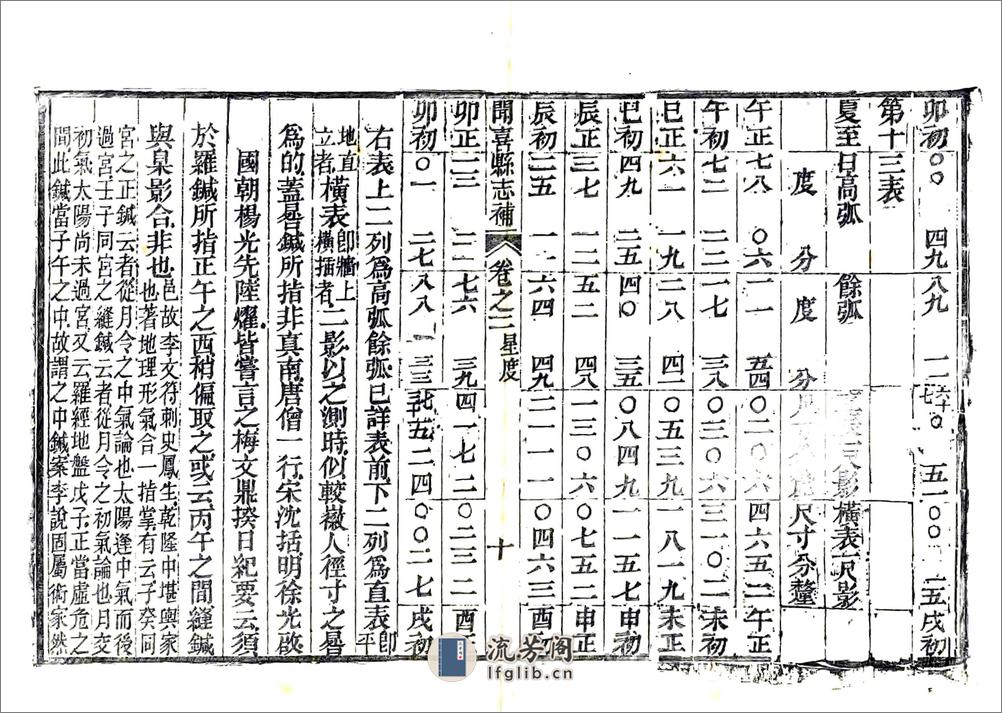 卯初〇〇 四九八九 一一 〇 五一〇〇一五戌初
第十三表
夏至日高弧 餘弧 影橫表一尺影
度 分 度 分 尺寸分釐
午正七八 〇六一一 五四〇二〇六四六五二午正
午初七二 二二一七 三八〇三〇六三一〇二未初
巳正六一 一九二八 四一〇五三九一八一九未正
巳初四九 二五四〇 三五〇八四九一一五七申初
辰正三七 一一五二 四八一三〇六〇七五二申正
辰初二五 一一六四 四九二一一一〇四六三酉
聞喜縣志補 卷之二星度 十
卯正一三 二一七六 三九四一七二〇二三二酉
卯初〇一 二七八八 三三 五二四〇〇二七戌初
右表上二列爲高弧餘弧已詳表前下二列爲直表卽平
地直立者橫表卽牆上橫揷者二影以之測時似較檄人徑寸之晷
爲的蓋晷鍼所指非真南唐僧一行宋沈括明徐光啟
國朝楊光先陸燿皆嘗言之梅文鼎揆日紀要云須
於羅鍼所指正午之西稍偏取之或云丙午之間縫鍼
與臬影合非也邑故李文得刺史鳳生乾隆中堪輿家也著地理形氣合一指掌有云子癸同
宮之正鍼云者從月令之中氣論也太陽逢中氣而後
過宮壬子同宮之縫鍼云者從月令之初氣論也月交
初氣太陽尚未過宮又云羅經地盤戊子正當虛危之
間此鍼當子午之中故謂之中鍼案李說固屬術家然
流芳閣
lfglib.cn